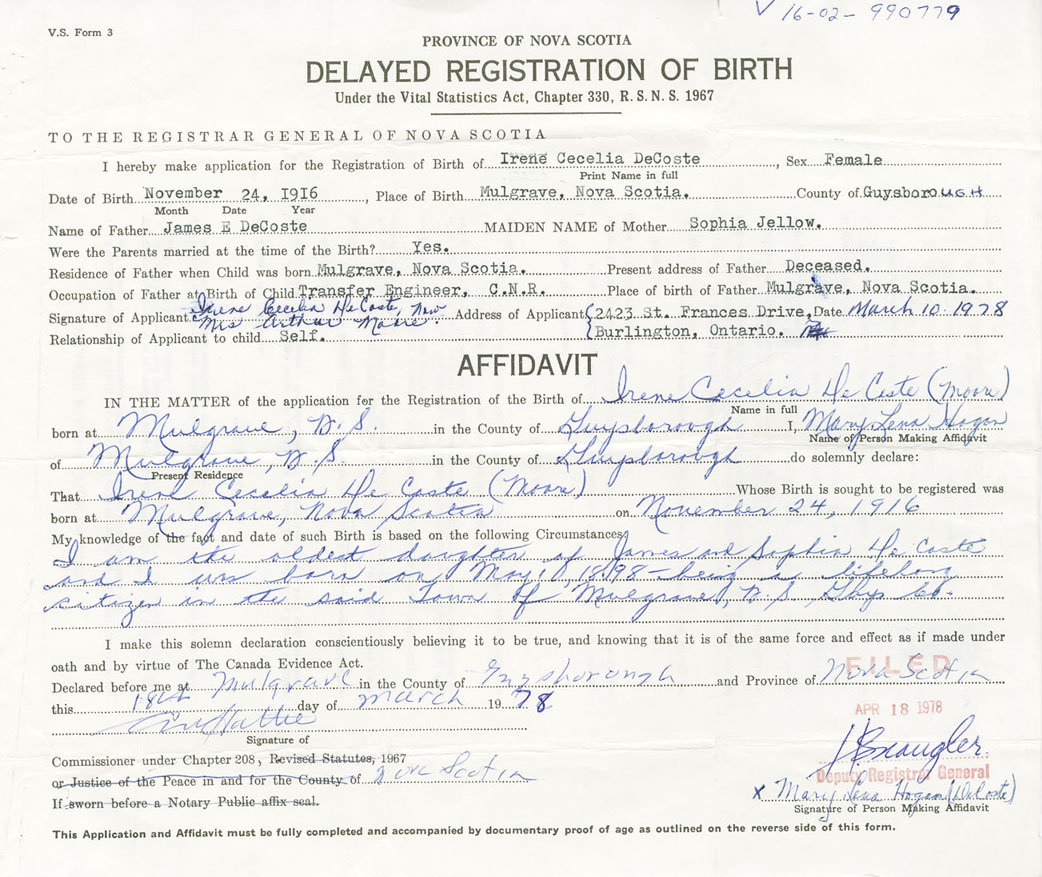 16-02-990779
V.S. Form 3
PROVINCE OF NOVA SCOTIA
DELAYED REGISTRATION OF BIRTH
Under the Vital Statistics Act, Chapter 330, R. S. N. S. 1967
TO THE REGISTRAR GENERAL OF NOVA SCOTIA
I hereby make application for the Registration of Birth of Irene Cecelia DeCoste, Sex Female
Print Name in full
Date of Birth November 24, 1916, Place of Birth Mulgrave, Nova Scotia. County of Guysborough
Month Date Year
Name of Father James E DeCoste MAIDEN NAME of Mother Sophia Jellow.
Were the Parents married at the time of the Birth? Yes.
Residence of Father when Child was born Mulgrave, Nova Scotia. Present address of Father Deceased.
Occupation of Father at Birth of Child Transfer Engineer, C.N.R. Place of birth of Father Mulgrave, Nova Scotia.
Signature of Applicant Irene Cecelia DeCoste, Now Mrs Arthur Moore. Address of Applicant 2423 St. Frances Drive, Date March 10-1978
Relationship of Applicant to child Self. Burlington, Ontario.
AFFIDAVIT
IN THE MATTER of the application for the Registration of the Birth of Irene Cecelia De Coste (Moore)
Name in full
born at Mulgrave, N.S. in the County of Guysborough I, Mary Lena Hogan
Name of Person Making Affidavit
of Mulgrave, N.S. in the County of Guysborough do solemnly declare:
Present Residence
That Irene Cecelia De Coste (Moore) Whose Birth is sought to be registered was
born at Mulgrave, Nova Scotia on November 24, 1916
My knowledge of the fact and date of such Birth is based on the following Circumstances
I am the oldest daughter of James and Sophia De Coste
and I was born on May 1, 1898 - being a lifelong
citizen in the said Town of Mulgrave, N.S., Guys Co.
I make this solemn declaration conscientiously believing it to be true, and knowing that it is of the same force and effect as if made under
oath and by virtue of The Canada Evidence Act.
Declared before me at Mulgrave in the County of Guysborough and Province of Nova Scotia
FILED
this 18th day of March 1978
APR 18 1978
Signature of
Commissioner under Chapter 208, Revised Statutes, 1967
or Justice of the Peace in and for the County of Nova Scotia
Deputy Registrar General
If sworn before a Notary Public affix seal.
x Mary Lena Hogan (DeCoste)
Signature of Person Making Affidavit
This Application and Affidavit must be fully completed and accompanied by documentary proof of age as outlined on the reverse side of this form.